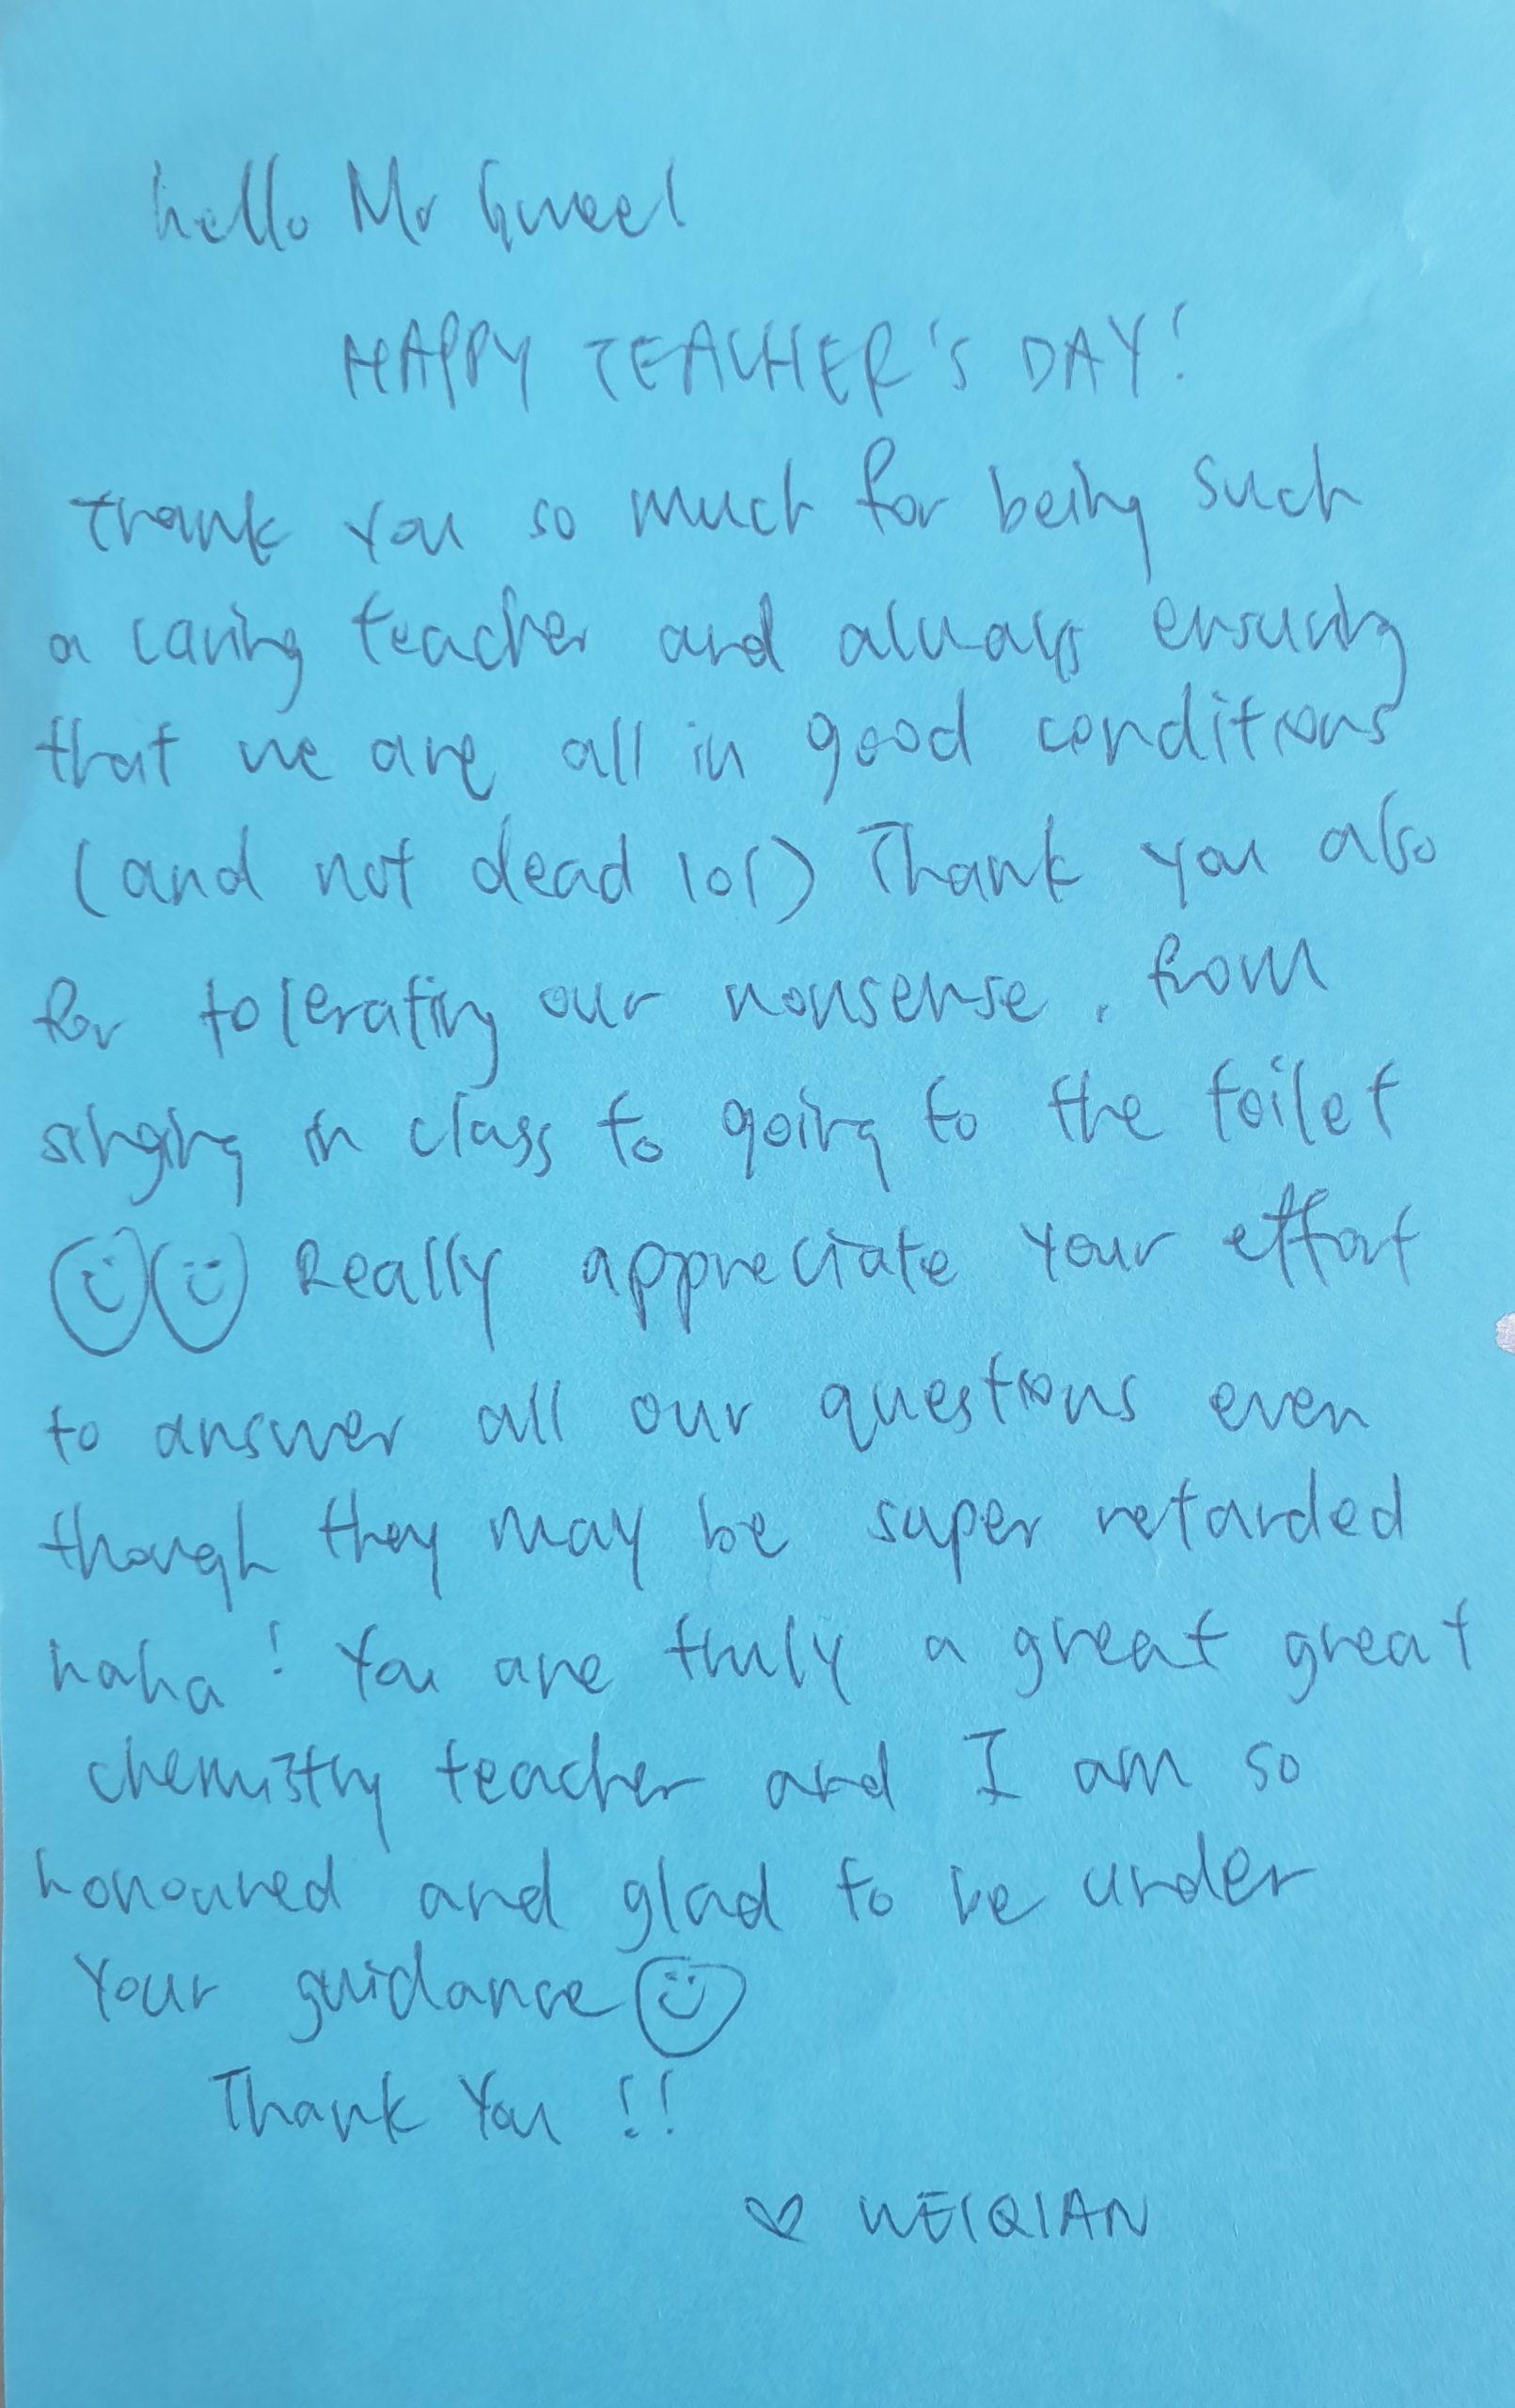 hello Mr Kwee!
HAPPY TEACHER'S DAY!
Thank you so much for being such
a caring teacher and always ensuring
that we are all in good conditions
(and not dead lol) Thank you also
for tolerating our nonsense, from
singing in class to going to the toilet
Really appreciate your effort
to answer all our questions even
though they may be super retarded
haha! You are truly a great great
chemistry teacher and I am so
honoured and glad to be under
your guidance
Thank You !!
WEIQIAN